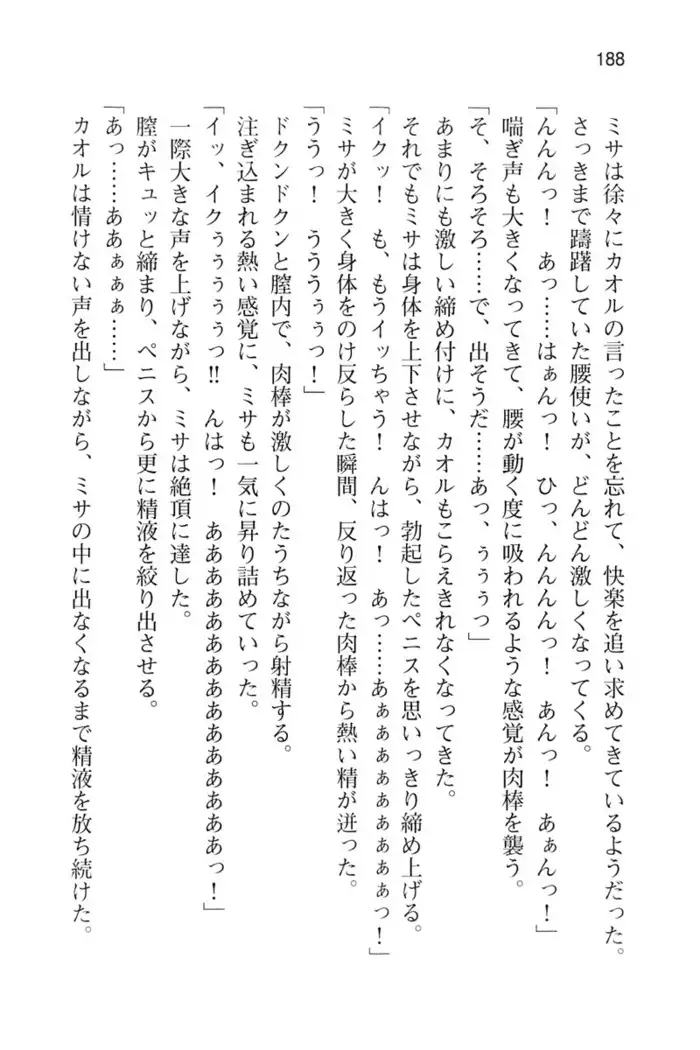 188
ミサは徐々にカオルの言ったことを忘れて、快楽を追い求めてきているようだった。
さっきまで躊躇していた腰使いが、どんどん激しくなってくる。
「んんんっ！　あっ……はぁんっ！　ひっ、んんんんっ！　あんっ！　あぁんっ！」
喘ぎ声も大きくなってきて、腰が動く度に吸われるような感覚が肉棒を襲う。
「そ、そろそろ……で、出そうだ……あっ、ぅぅぅっ」
あまりにも激しい締め付けに、カオルもこらえきれなくなってきた。
それでもミサは身体を上下させながら、勃起したペニスを思いっきり締め上げる。
「イクッ！　も、もうイッちゃう！　んはっ！　あっ……あぁぁぁぁぁぁぁぁっ！」
ミサが大きく身体をのけ反らした瞬間、反り返った肉棒から熱い精が迸った。
「ううっ！　うううぅぅっ！」
ドクンドクンと膣内で、肉棒が激しくのたうちながら射精する。
注ぎ込まれる熱い感覚に、ミサも一気に昇り詰めていった。
「イッ、イクぅぅぅぅぅっ!!　んはっ！　あああああああああああああああっ！」
一際大きな声を上げながら、ミサは絶頂に達した。
膣がキュッと締まり、ペニスから更に精液を絞り出させる。
「あっ……ああぁぁぁ……」
カオルは情けない声を出しながら、ミサの中に出なくなるまで精液を放ち続けた。